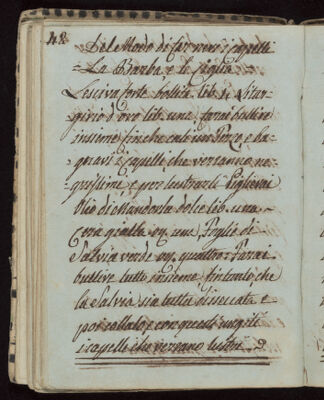 42
Del Modo di far neri i capelli
La Barba, e le Ciglia
Lesciva forte bollita lib. 1. Litar-
girio d'oro lib. una farai bollire
insieme finche cali un Terzo, e ba-
gnavi i capelli, che verranno ne-
grissimi, e per lustrarli Piglierai
Olio di Mandorla dolce lib. una
Cera gialla on. una, Foglie di
Salvia verde on. quattro Farai
bullire tutto insieme fintanto, che
la Salvia sia tutta disseccata e
poi collalo, e con questo ungeti
i capelli che verrano lustri